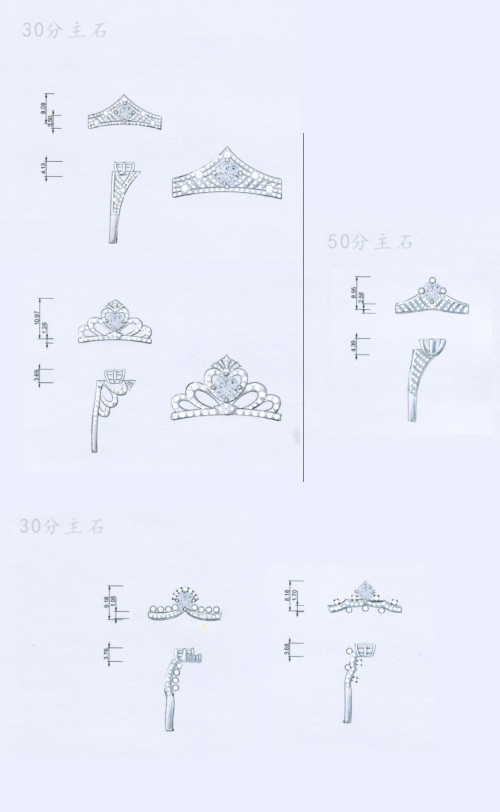 30分主石
8.28
3.50
4.13
10.97
1.28
3.69
50分主石
8.95
2.58
4.39
30分主石
9.18
1.95
3.76
8.16
1.70
3.68